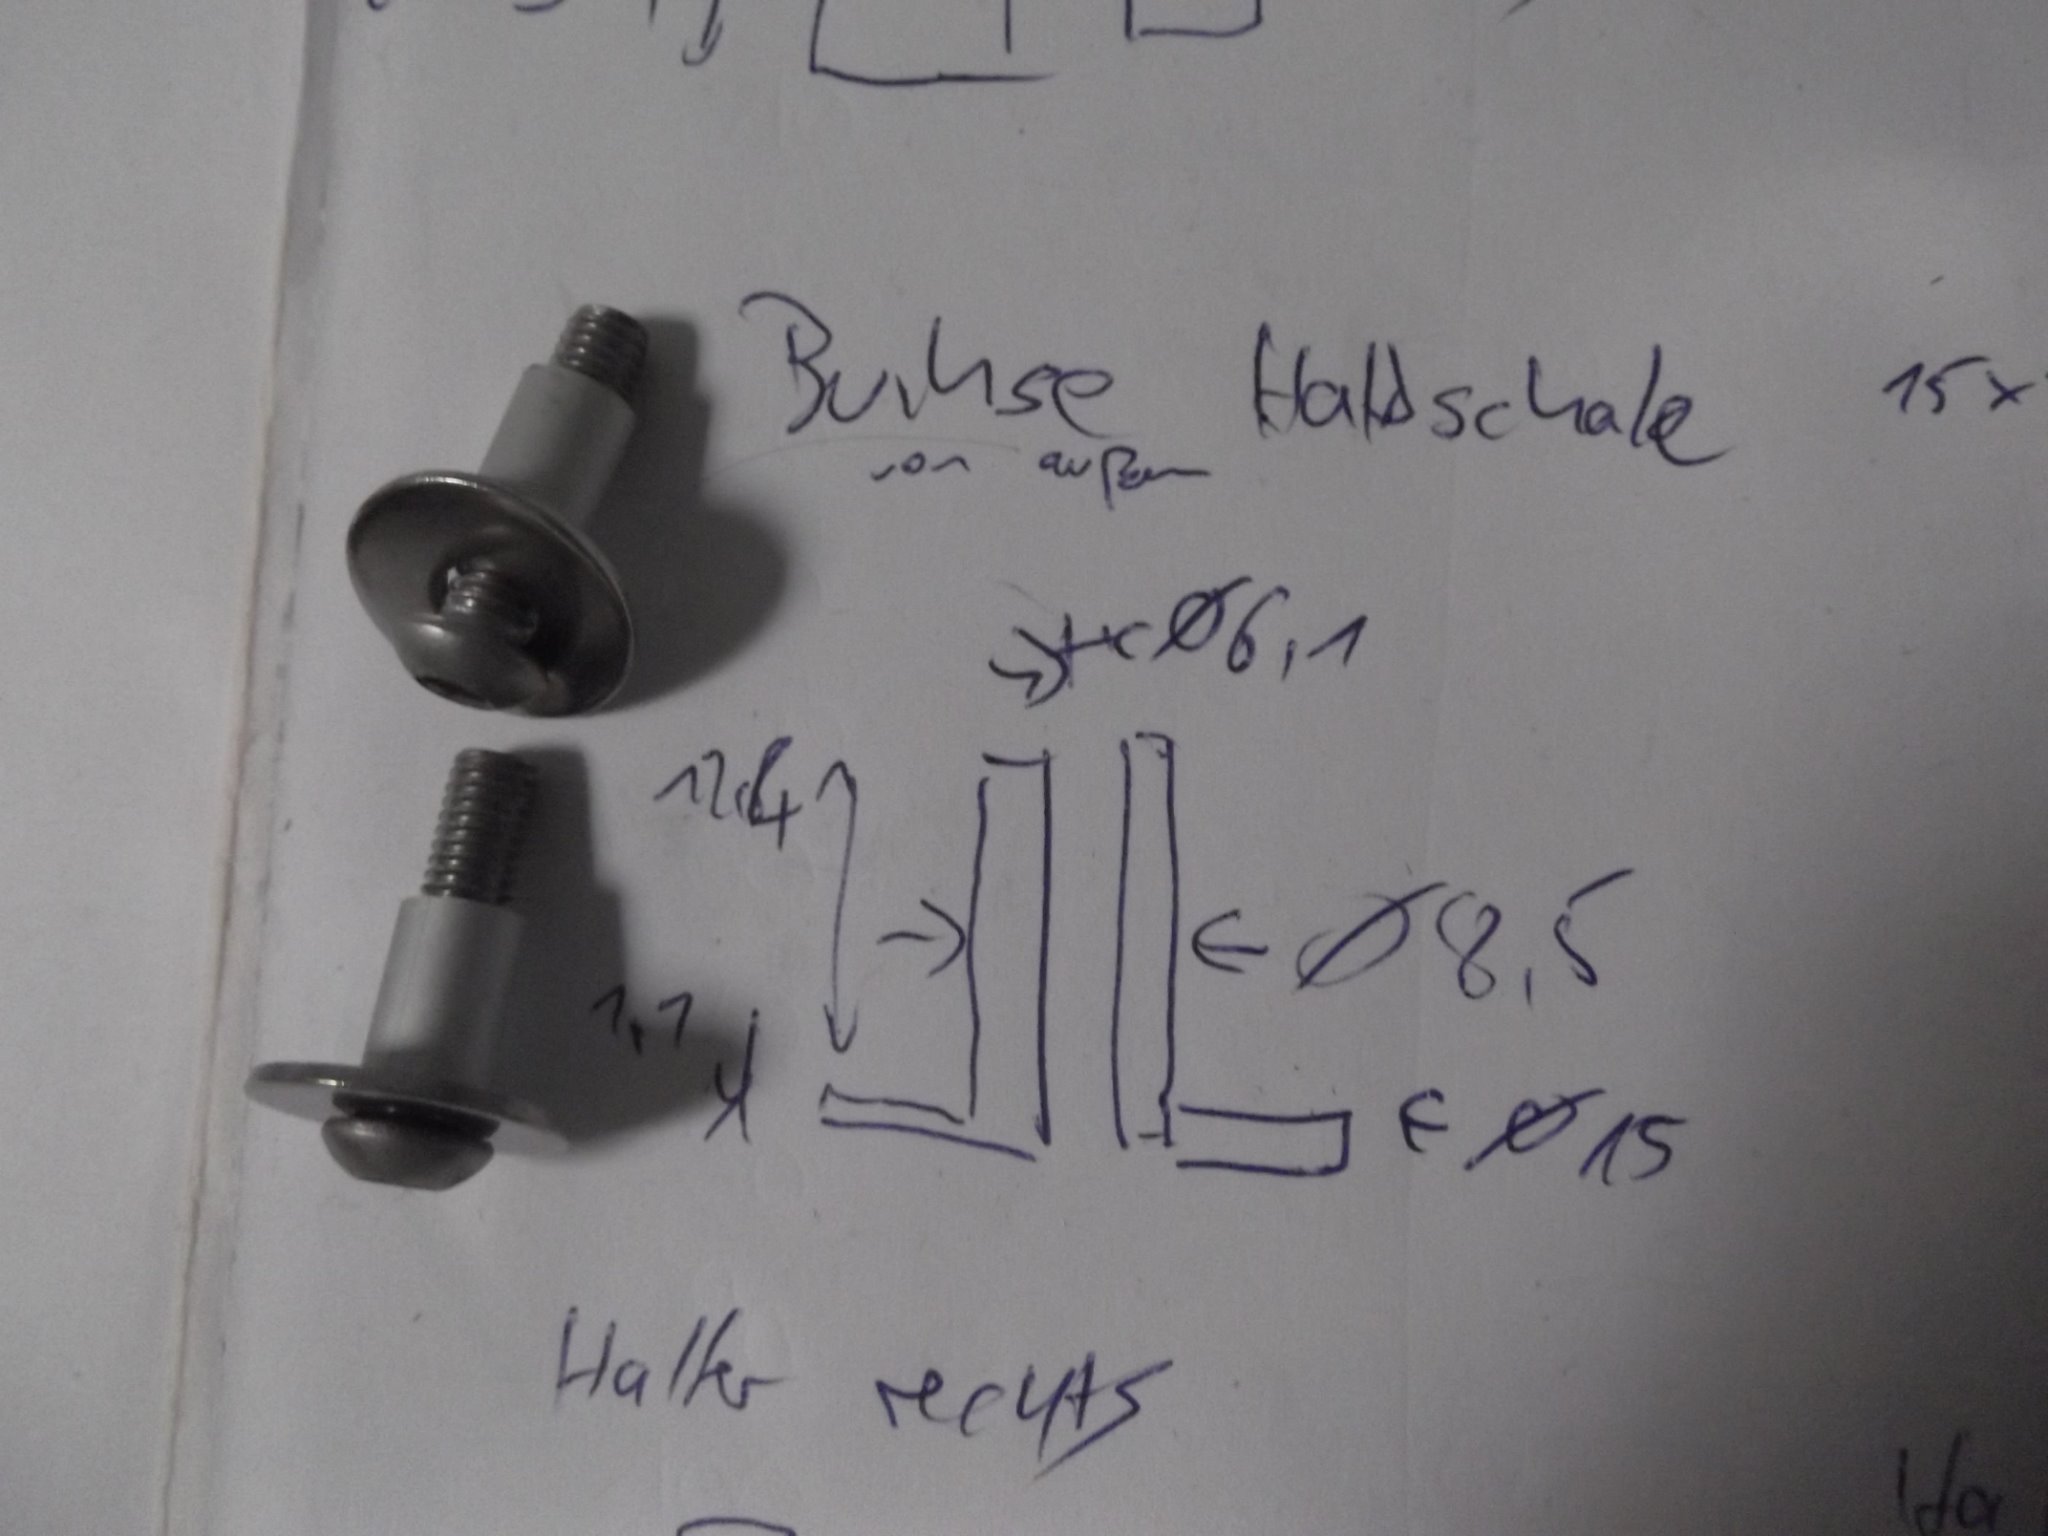 Buchse Halbschale 15x
von außen
Ø6,1
12,4
Ø8,5
1,1
Ø15
Halter rechts
Ha